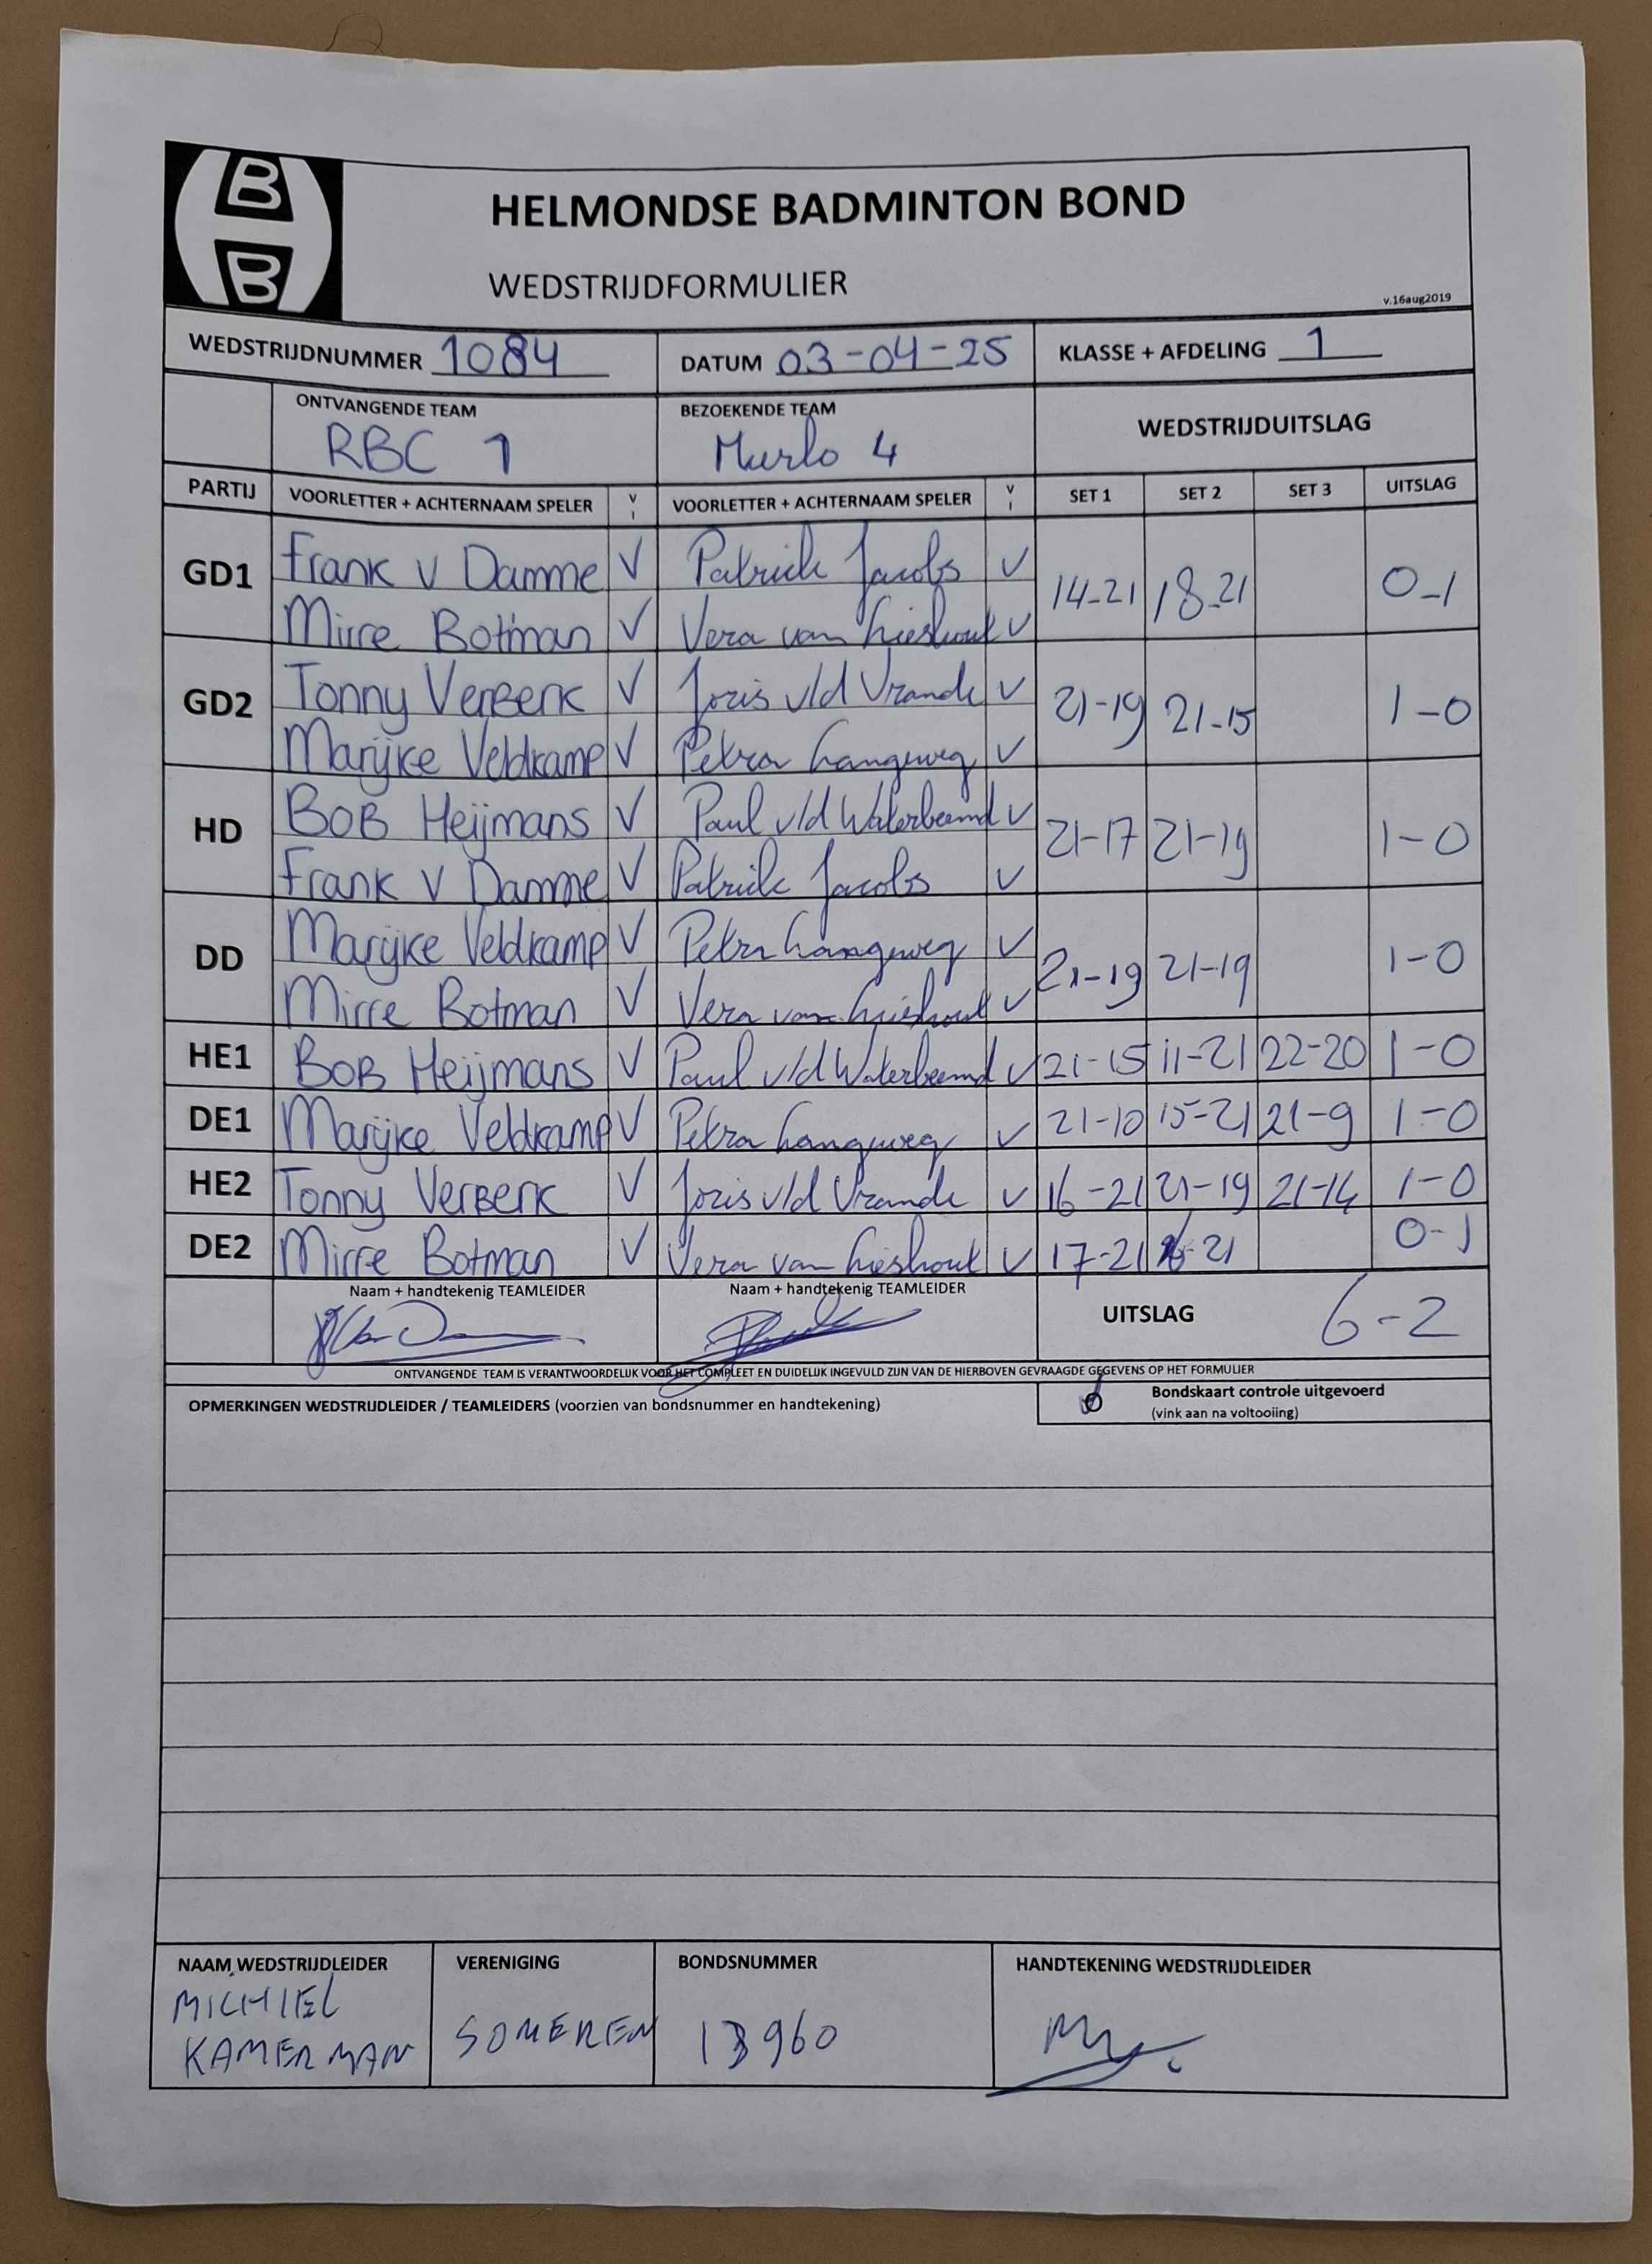 B
B
HELMONDSE BADMINTON BOND
WEDSTRIJDFORMULIER
v.16aug2019
WEDSTRIJDNUMMER 1084 DATUM 03-04-25 KLASSE + AFDELING 1
ONTVANGENDE TEAM BEZOEKENDE TEAM WEDSTRIJDUITSLAG
RBC 1 Murlo 4
PARTIJ VOORLETTER + ACHTERNAAM SPELER V I VOORLETTER + ACHTERNAAM SPELER V I SET 1 SET 2 SET 3 UITSLAG
GD1 Frank v Damme V Patrick Jacobs V 14-21 18-21 0-1
Mirre Botman V Vera van Lieshout V
GD2 Tonny Verberk V Joris v/d Vrande V 21-19 21-15 1-0
Marijke Veldkamp V Petra Langeweg V
HD BOB Heijmans V Paul v/d Waterbeemd V 21-17 21-19 1-0
Frank v Damme V Patrick Jacobs V
DD Marijke Veldkamp V Petra Langeweg V 21-19 21-19 1-0
Mirre Botman V Vera van Lieshout V
HE1 BOB Heijmans V Paul v/d Waterbeemd V 21-15 11-21 22-20 1-0
DE1 Marijke Veldkamp V Petra Langeweg V 21-10 15-21 21-9 1-0
HE2 Tonny Verberk V Joris v/d Vrande V 16-21 21-19 21-14 1-0
DE2 Mirre Botman V Vera van Lieshout V 17-21 -21 0-1
Naam + handtekenig TEAMLEIDER Naam + handtekenig TEAMLEIDER
UITSLAG 6-2
ONTVANGENDE TEAM IS VERANTWOORDELIJK VOOR HET COMPLEET EN DUIDELIJK INGEVULD ZIJN VAN DE HIERBOVEN GEVRAAGDE GEGEVENS OP HET FORMULIER
OPMERKINGEN WEDSTRIJDLEIDER / TEAMLEIDERS (voorzien van bondsnummer en handtekening)
Bondskaart controle uitgevoerd
(vink aan na voltooiing)
NAAM WEDSTRIJDLEIDER VERENIGING BONDSNUMMER HANDTEKENING WEDSTRIJDLEIDER
MICHIEL
KAMERMAN SOMEREN 13960